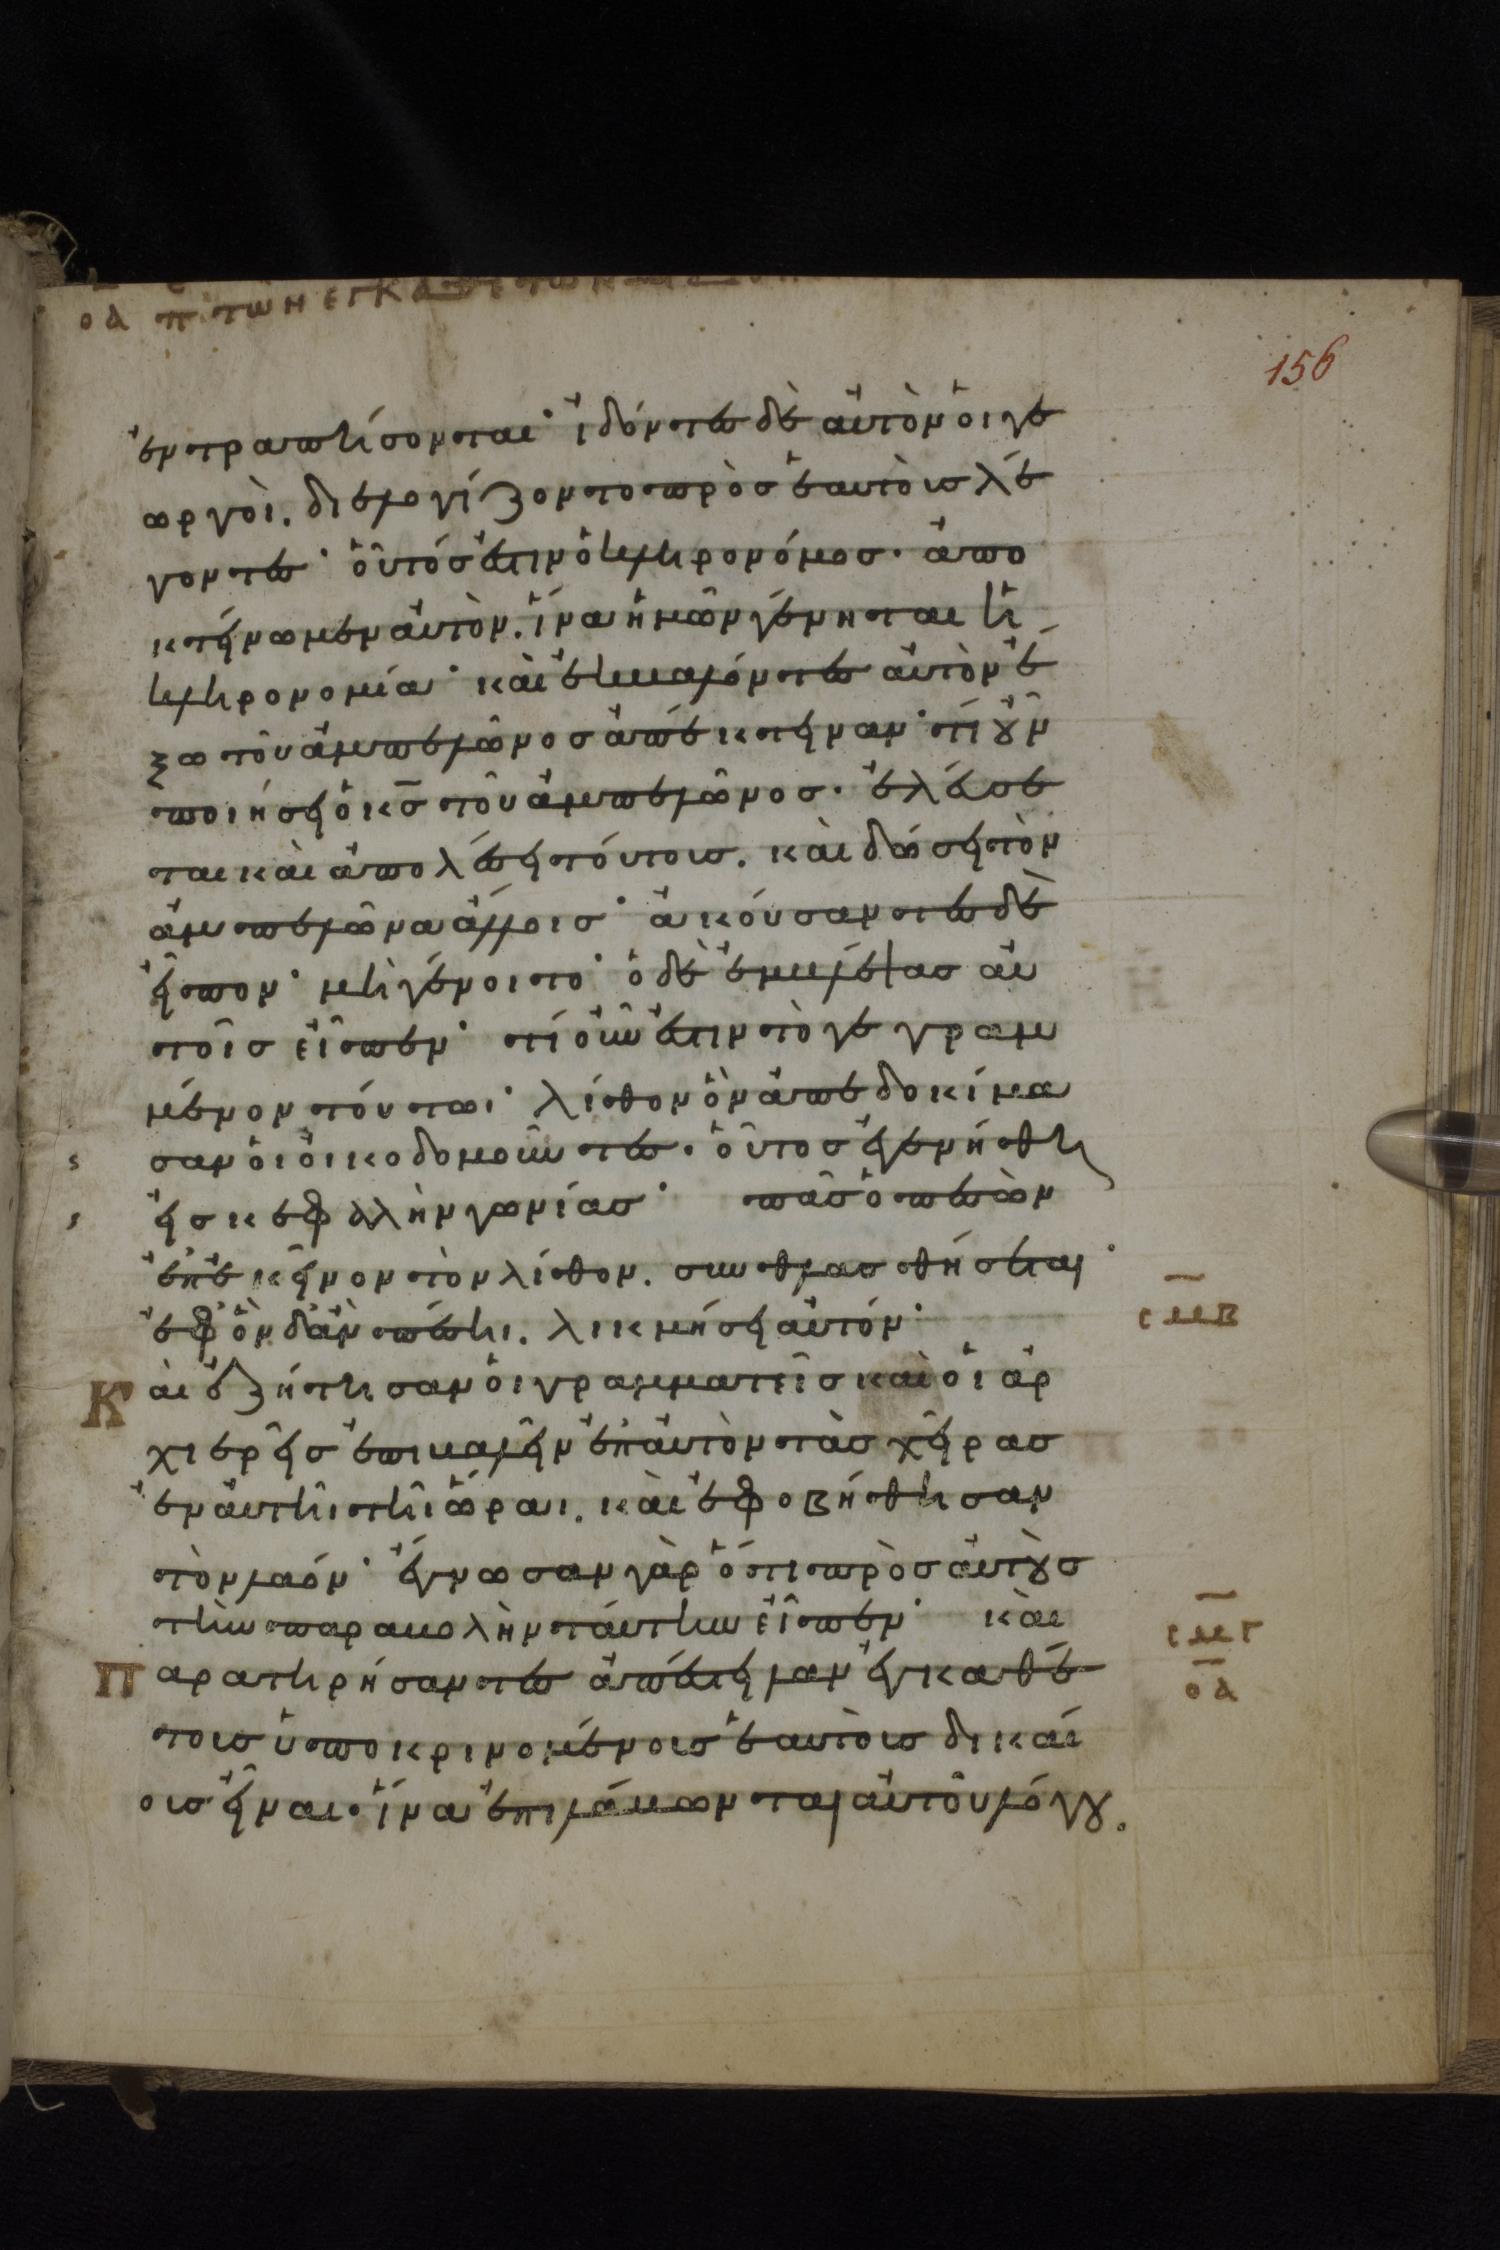 οδ π τῶν ἐγκαθέτων
156
ἐντραπήσονται· ἰδόντες δὲ αὐτὸν οἱ γε
ωργοὶ. διελογίζοντο πρὸς ἑαυτοὺς λέ
γοντες· οὗτός ἐστιν ὁ κληρονόμος. ἀπο
κτείνωμεν αὐτὸν. ἵνα ἡμῶν γένηται ἡ
κληρονομία· καὶ ἐκβαλόντες αὐτὸν ἔ
ξω τοῦ ἀμπελῶνος ἀπέκτειναν· τί οὖν
ποιήσει ὁ κς τοῦ ἀμπελῶνος. ἐλεύσε
ται καὶ ἀπολέσει τούτους. καὶ δώσει τὸν
ἀμπελῶνα ἄλλοις· ἀκούσαντες δὲ
εἶπον· μὴ γένοιτο· ὁ δὲ ἐμβλέψας αὐ
τοῖς εἶπεν· τί οὖν ἐστιν τὸ γεγραμ
μένον τοῦτο· λίθον ὃν ἀπεδοκίμα
σαν οἱ οἰκοδομοῦντες. οὗτος ἐγενήθη
εἰς κεφαλὴν γωνίας· πᾶς ὁ πεσὼν
ἐπ' ἐκεῖνον τὸν λίθον. συνθλασθήσεται·
ἐφ' ὃν δ' ἂν πέσηι. λικμήσει αὐτόν·
σμβ
Καὶ ἐζήτησαν οἱ γραμματεῖς καὶ οἱ ἀρ
χιερεῖς ἐπιβαλεῖν ἐπ' αὐτὸν τὰς χεῖρας
ἐν αὐτῆι τῆι ὥραι. καὶ ἐφοβήθησαν
τὸν λαόν· ἔγνωσαν γὰρ ὅτι πρὸς αὐτοὺς
τὴν παραβολὴν ταύτην εἶπεν· καὶ
σμγ
Παρατηρήσαντες ἀπέστειλαν ἐγκαθέ
οδ
τους ὑποκρινομένους ἑαυτοὺς δικαί
ους εἶναι. ἵνα ἐπιλάβωνται αὐτοῦ λόγου.